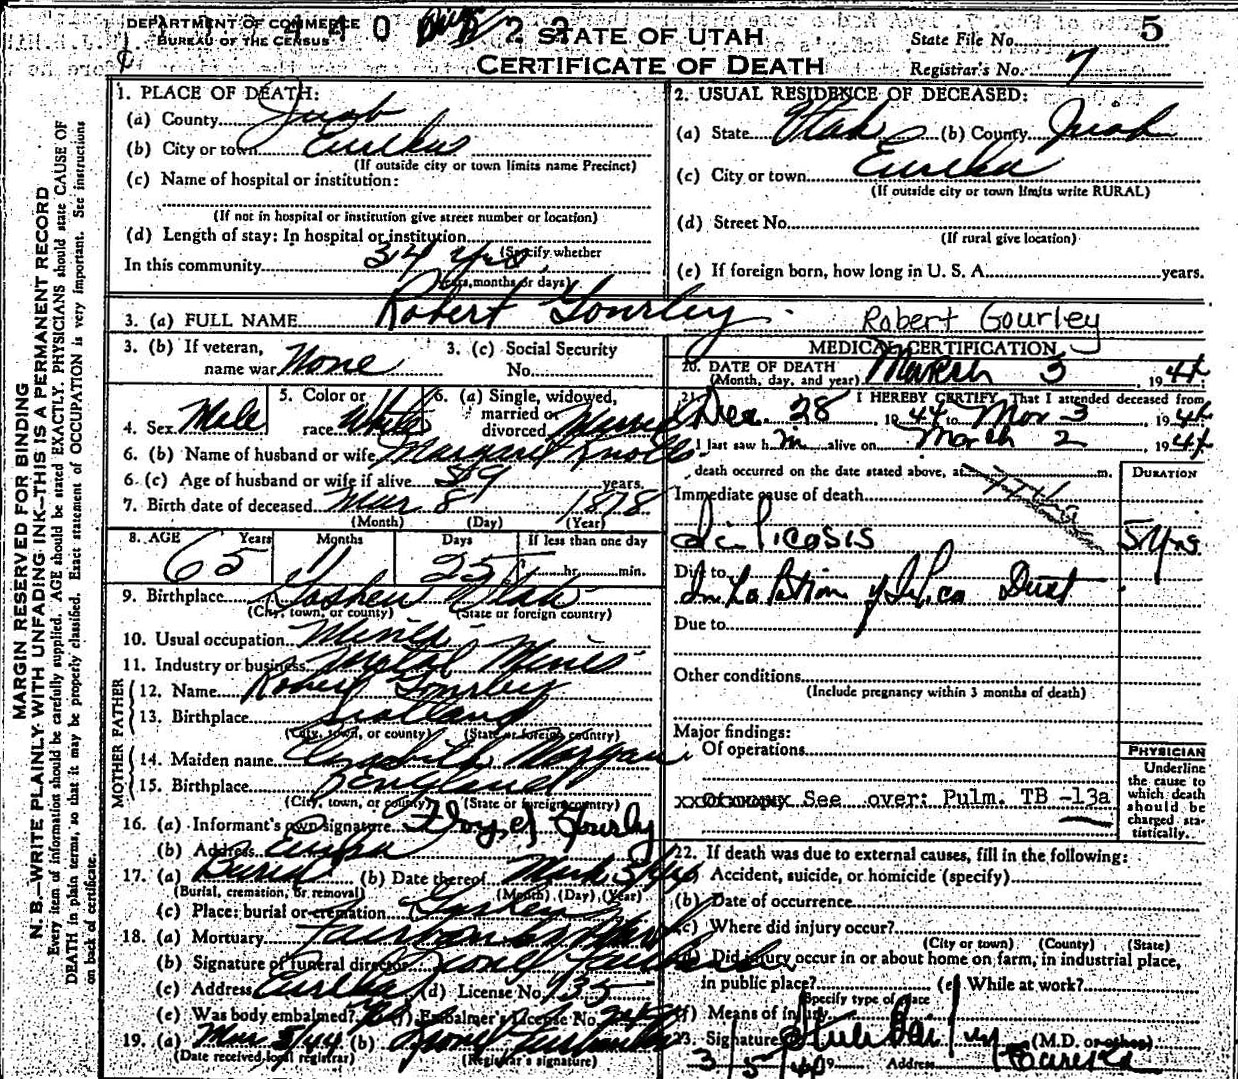 DEPARTMENT OF COMMERCE
BUREAU OF THE CENSUS
STATE OF UTAH
CERTIFICATE OF DEATH
State File No. 5
Registrar's No. 7
MARGIN RESERVED FOR BINDING
N. B.—WRITE PLAINLY, WITH UNFADING INK—THIS IS A PERMANENT RECORD
Every item of information should be carefully supplied. AGE should be stated EXACTLY. PHYSICIANS should state CAUSE OF
DEATH in plain terms, so that it may be properly classified. Exact statement of OCCUPATION is very important. See instructions
on back of certificate.
1. PLACE OF DEATH:
(a) County Juab
(b) City or town Eureka
(If outside city or town limits name Precinct)
(c) Name of hospital or institution:
(If not in hospital or institution give street number or location)
(d) Length of stay: In hospital or institution
(Specify whether
In this community 34 yrs.
years, months or days)
2. USUAL RESIDENCE OF DECEASED:
(a) State Utah (b) County Juab
(c) City or town Eureka
(If outside city or town limits write RURAL)
(d) Street No.
(If rural give location)
(e) If foreign born, how long in U. S. A. years.
3. (a) FULL NAME Robert Gourley
Robert Gourley
3. (b) If veteran, name war None
3. (c) Social Security No.
4. Sex Male
5. Color or race White
6. (a) Single, widowed, married or divorced Married
6. (b) Name of husband or wife Margaret Knolls
6. (c) Age of husband or wife if alive 59 years.
7. Birth date of deceased Mar 8 1878
(Month) (Day) (Year)
8. AGE Years Months Days If less than one day
65 11 25 hr. min.
9. Birthplace Goshen Utah
(City, town, or county) (State or foreign country)
10. Usual occupation Miner
11. Industry or business Metal Mines
FATHER
12. Name Robert Gourley
13. Birthplace Scotland
(City, town, or county) (State or foreign country)
MOTHER
14. Maiden name Elizabeth Morgan
15. Birthplace England
(City, town, or county) (State or foreign country)
16. (a) Informant's own signature Gourley
(b) Address Eureka
17. (a) Burial (b) Date thereof March 5/44
(Burial, cremation, or removal) (Month) (Day) (Year)
(c) Place: burial or cremation Goshen
18. (a) Mortuary
(b) Signature of funeral director
(c) Address Eureka (d) License No. 135
(e) Was body embalmed? (f) Embalmer's License No.
19. (a) Mar 5/44 (b)
(Date received local registrar) (Registrar's signature)
MEDICAL CERTIFICATION
20. DATE OF DEATH
(Month, day, and year) March 3, 1944
21. I HEREBY CERTIFY, That I attended deceased from
Dec. 28 1944 to Mar 3 1944
I last saw him alive on March 2 1944
death occurred on the date stated above, at m.
DURATION
Immediate cause of death
Silicosis 5 yrs
Due to
Inhalation of Silica Dust
Due to
Other conditions
(Include pregnancy within 3 months of death)
Major findings:
Of operations
See over: Pulm. TB -13a
PHYSICIAN
Underline
the cause to
which death
should be
charged sta-
tistically.
22. If death was due to external causes, fill in the following:
(a) Accident, suicide, or homicide (specify)
(b) Date of occurrence
(c) Where did injury occur?
(City or town) (County) (State)
(d) Did injury occur in or about home on farm, in industrial place,
in public place? (e) While at work?
(Specify type of place
(f) Means of injury
23. Signature (M.D. or other)
3/5/44 Address Eureka